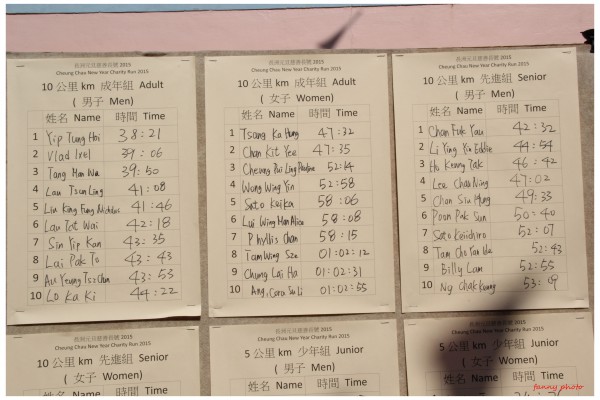 長洲元旦慈善長跑 2015
Cheung Chau New Year Charity Run 2015
10 公里 km 成年組 Adult
( 男子 Men)
姓名 Name 時間 Time
1 Yip Tung Hoi 38:21
2 Vlad Ixel 39:06
3 Tang Man Wa 39:50
4 Lau Tsun Ling 41:08
5 Lin King Fung 41:46
6 Lau Tat Wai 42:18
7 Sin Yip Kan 43:35
8 Lai Pak To 43:43
9 Au Yeung Tsz Chun 43:53
10 Lo Ka Ki 44:22
長洲元旦慈善長跑 2015
Cheung Chau New Year Charity Run 2015
10 公里 km 成年組 Adult
( 女子 Women)
姓名 Name 時間 Time
1 Tsang Ka Hung 47:32
2 Chan Kit Yee 47:35
3 Cheung Pui Ling 52:14
4 Wong Wing Yin 52:58
5 Sato Keika 58:06
6 Lui Wing Han Alice 58:08
7 Phyllis Chan 58:15
8 Tam Wing Sze 01:02:12
9 Chung Lai Ha 01:02:31
10 Ang, Cara Su Li 01:02:55
長洲元旦慈善長跑 2015
Cheung Chau New Year Charity Run 2015
10 公里 km 先進組 Senior
( 男子 Men)
姓名 Name 時間 Time
1 Chan Fuk Yau 42:32
2 Li Ying Yin Eddie 44:54
3 Ho Keung Tak 46:42
4 Lee Chun Ning 47:02
5 Chan Siu Hung 49:33
6 Poon Pak Sun 50:40
7 Sato Keiichiro 52:07
8 Tam Cho Yau 52:43
9 Billy Lam 52:55
10 Ng Chak Keung 53:09
長洲元旦慈善長跑 2015
Cheung Chau New Year Charity Run 2015
10 公里 km 先進組 Senior
( 女子 Women)
姓名 Name 時間 Time
長洲元旦慈善長跑 2015
Cheung Chau New Year Charity Run 2015
5 公里 km 少年組 Junior
( 男子 Men)
姓名 Name 時間 Time
長洲元旦慈善長跑 2015
Cheung Chau New Year Charity Run 2015
5 公里 km 少年組 Junior
( 女子 Women)
姓名 Name 時間 Time
fanny photo